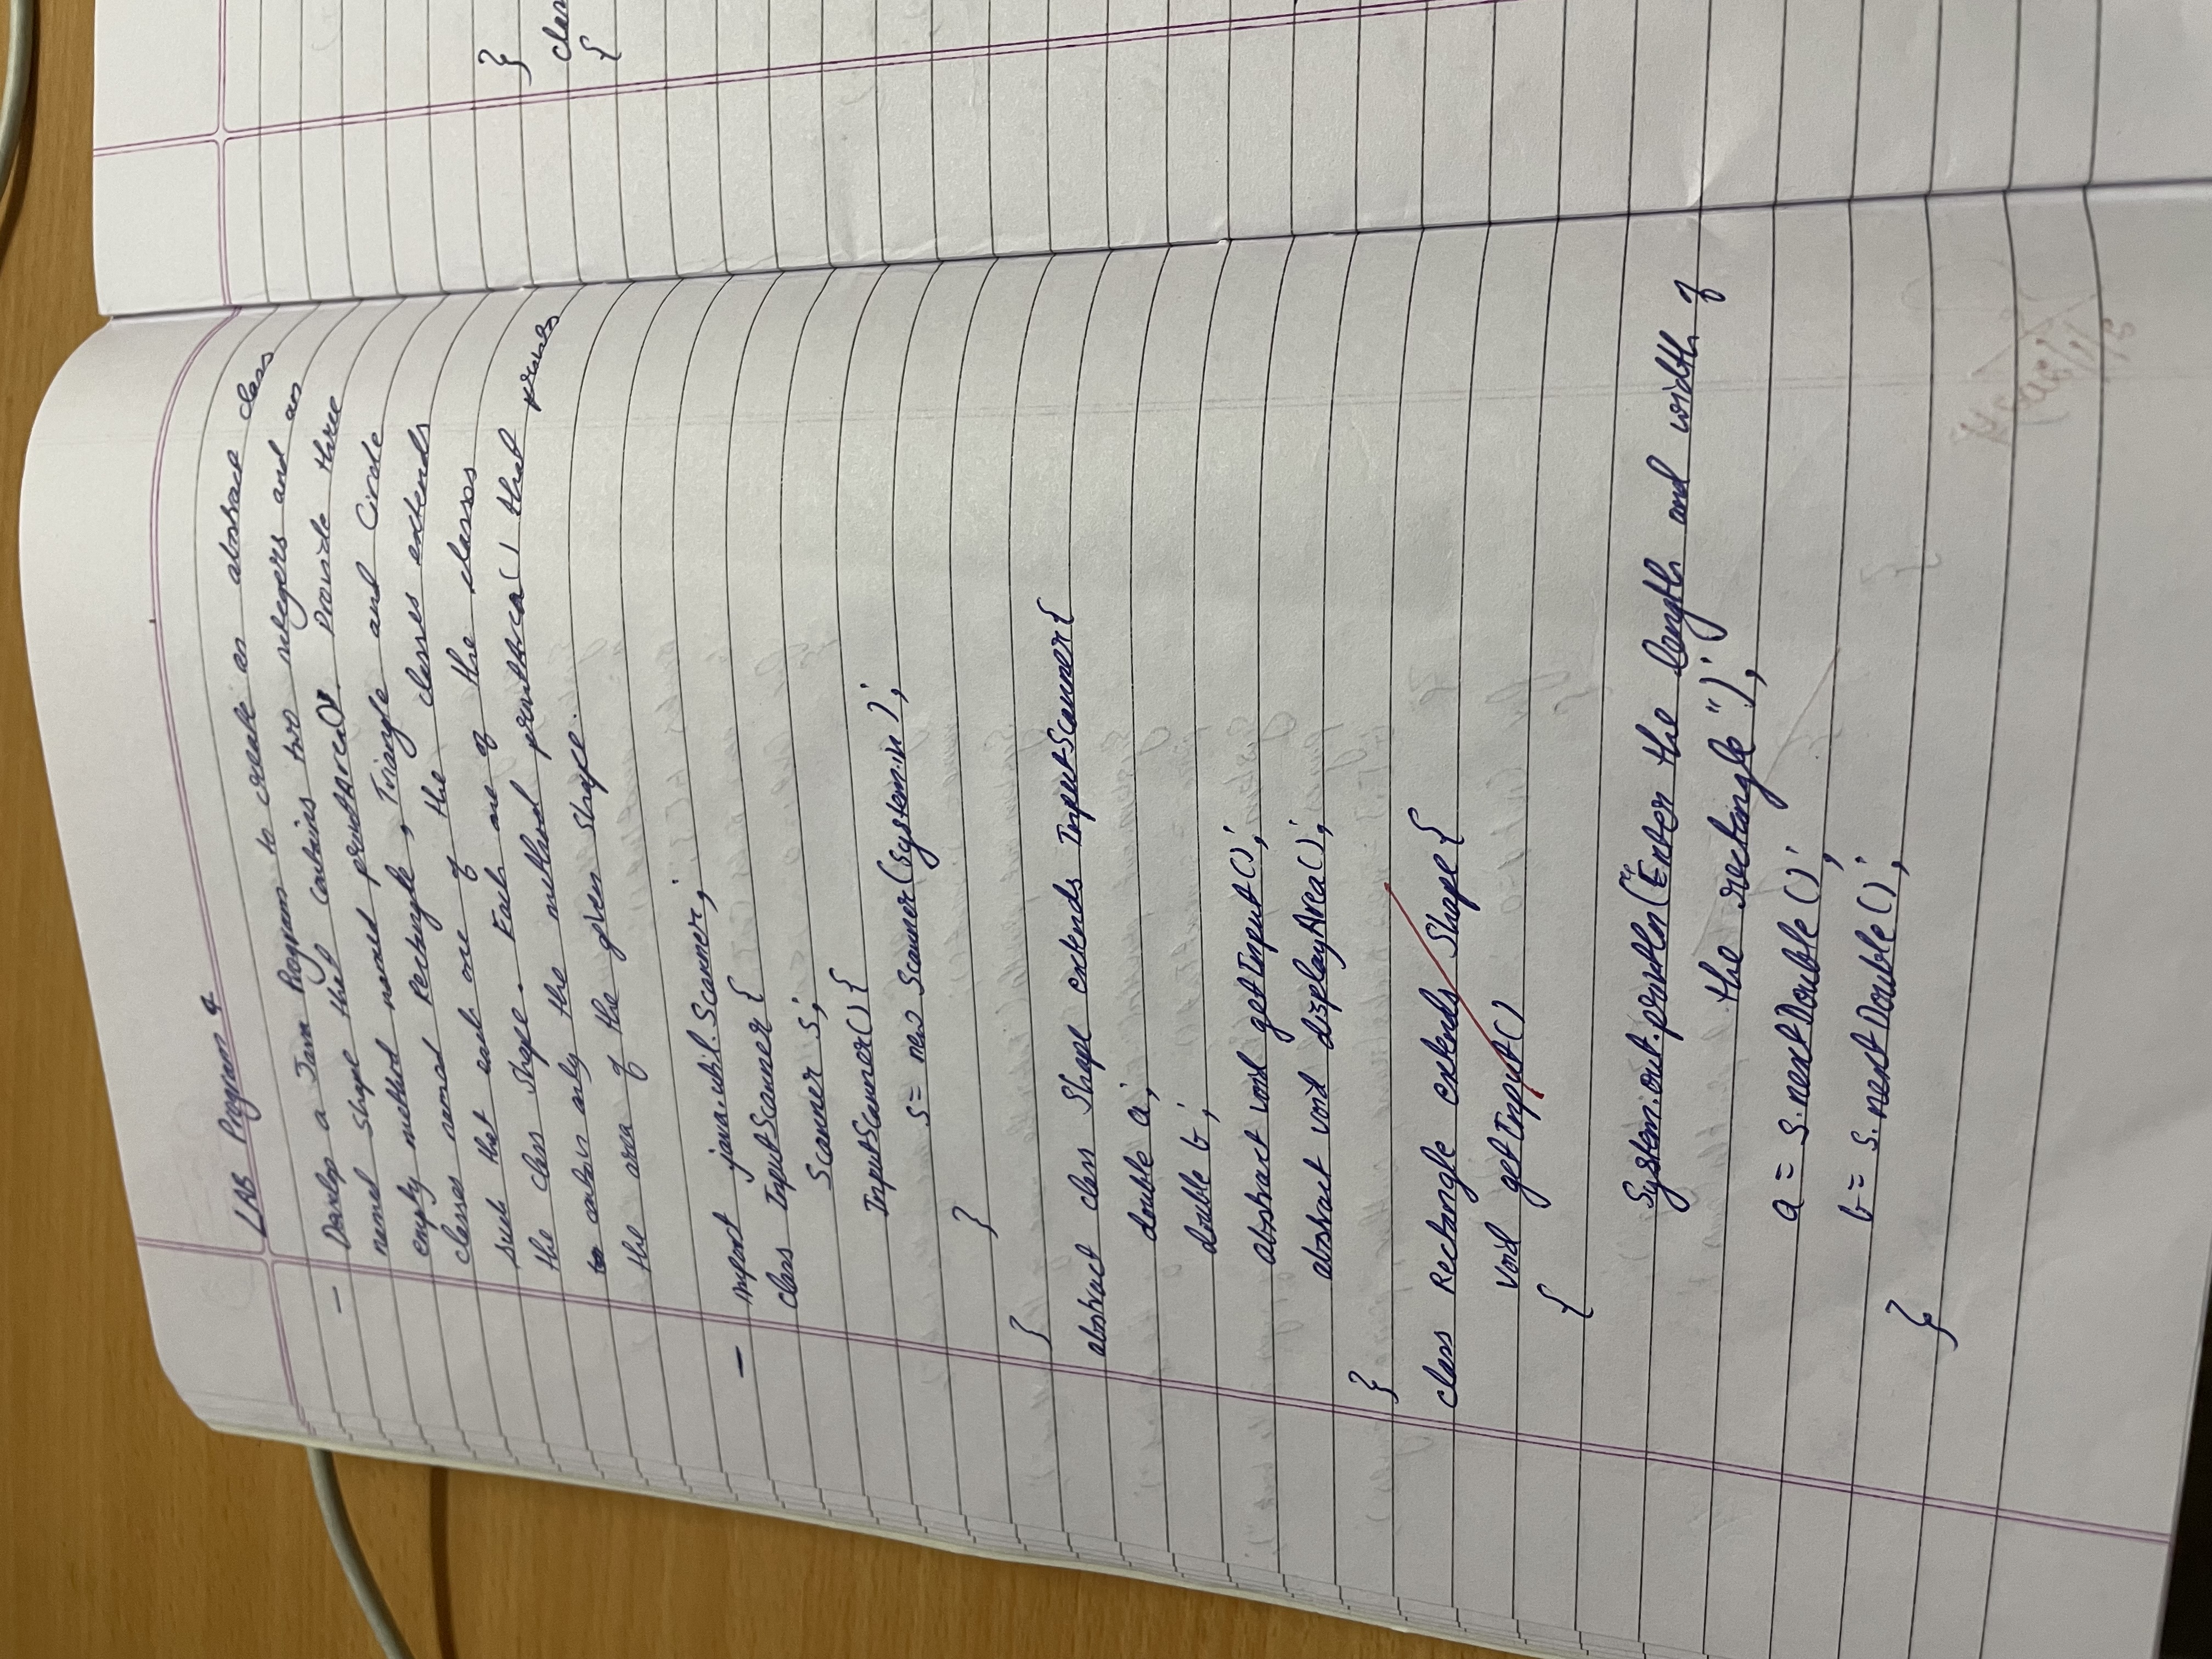 LAB Program 4
- Develop a Java Program to create an abstract class
named Shape that contains two integers and an
empty method named printArea(). Provide three
classes named Rectangle, Triangle and Circle
such that each one of the classes extends
the class Shape. Each one of the classes
contain only the method printArea() that prints
the area of the given shape.
- import java.util.Scanner;
class InputScanner {
Scanner s;
InputScanner() {
s = new Scanner(System.in);
}
}
abstract class Shape extends InputScanner {
double a;
double b;
abstract void getInput();
abstract void displayArea();
}
class Rectangle extends Shape {
void getInput()
{
System.out.println("Enter the length and width of
the rectangle");
a = s.nextDouble();
b = s.nextDouble();
}
}
clas
{